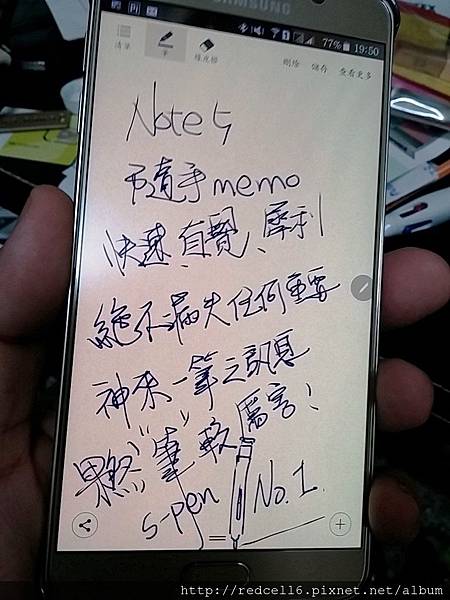 SAMSUNG
77% 19:50
清單 筆 橡皮擦 刪除 儲存 查看更多
Note 5
可隨手memo
快速、直覺、犀利
絕不漏失任何重要
神來一筆之訊息
果然"筆"較厲害!
s-pen No.1.
http://redcell6.pixnet.net/album